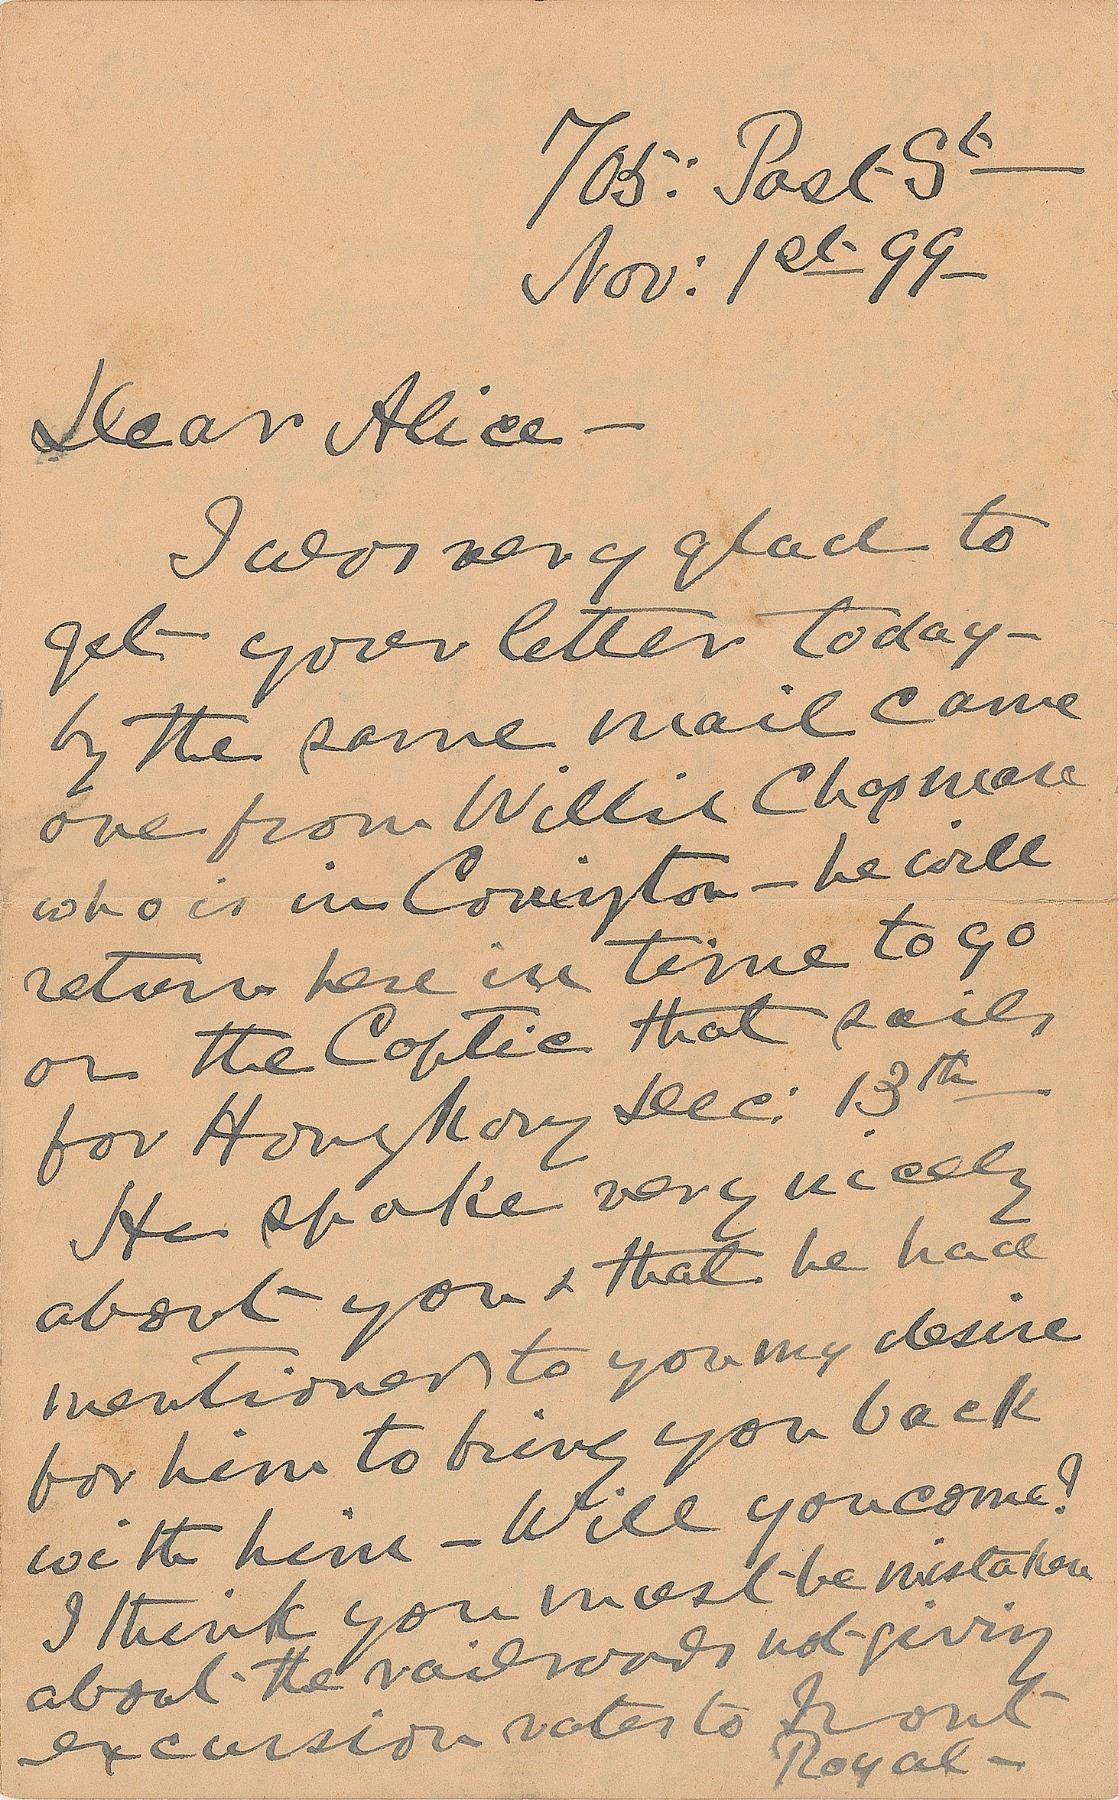 705: Post St
Nov: 1st 99
Dear Alice -
I was very glad to
get your letter today -
by the same mail came
one from Willis Chapman
who is in Covington - he will
return here in time to go
on the Coptic that sails
for Hongkong Dec: 13th
He spoke very nicely
about you & that he had
mentioned to you my desire
for him to bring you back
with him - Will you come?
I think you must be mistaken
about the railroads not giving
excursion rates to Front
Royal -